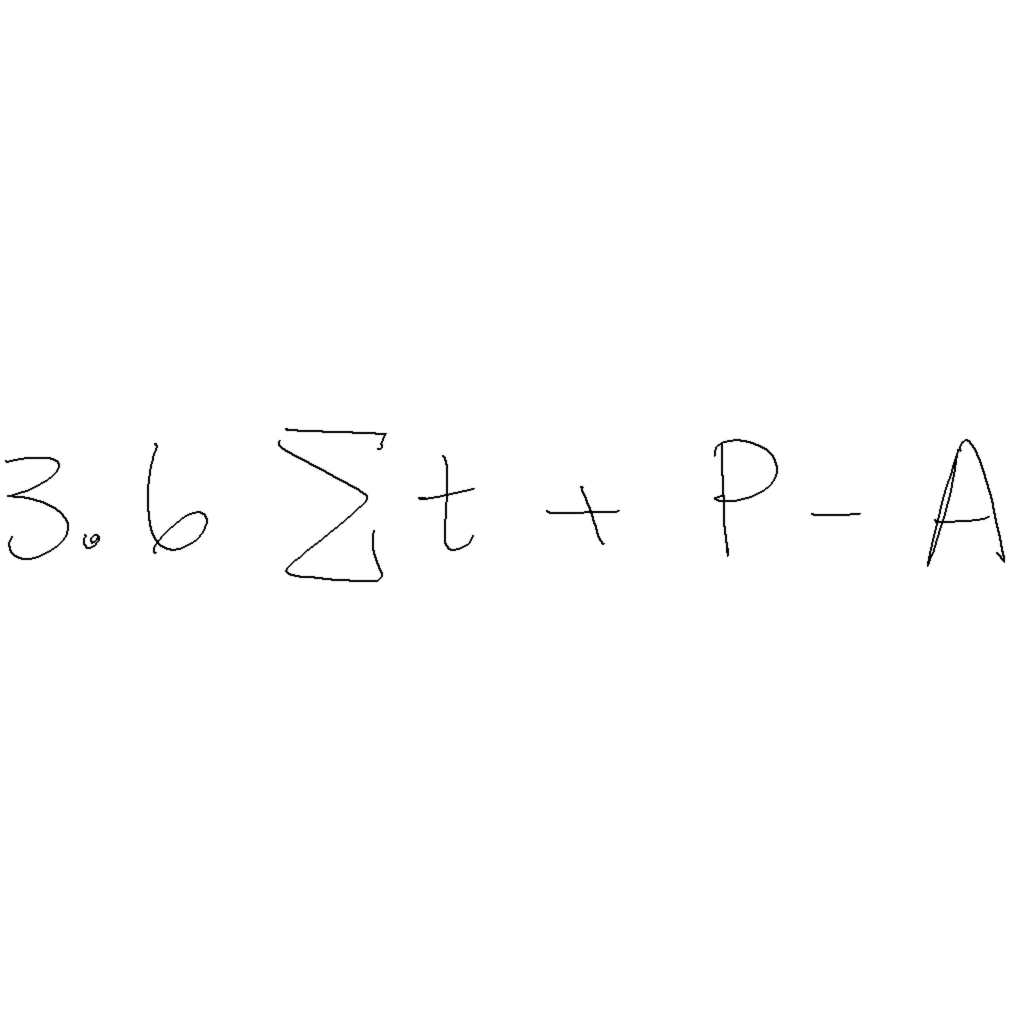 3.6 ∑ t + P − A